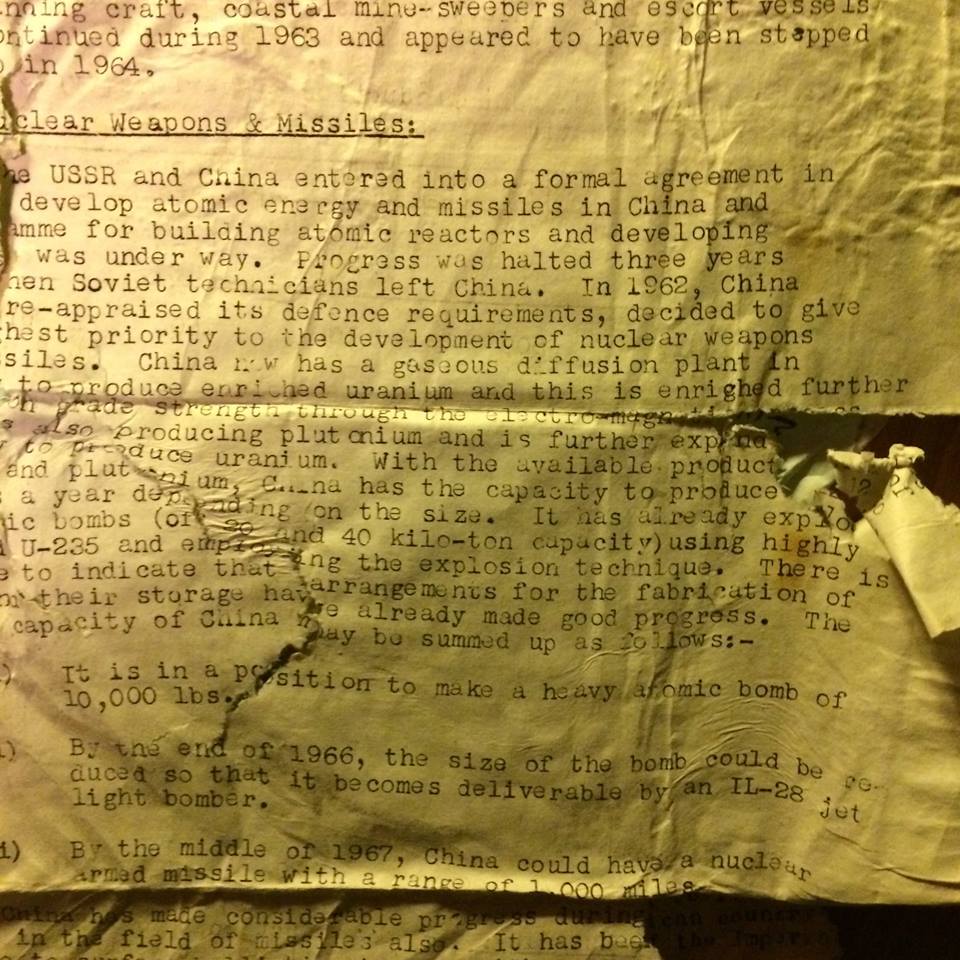 nning craft, coastal mine-sweepers and escort vessels
ontinued during 1963 and appeared to have been stepped
in 1964.
uclear Weapons & Missiles:
he USSR and China entered into a formal agreement in
develop atomic energy and missiles in China and
amme for building atomic reactors and developing
was under way. Progress was halted three years
hen Soviet technicians left China. In 1962, China
re-appraised its defence requirements, decided to give
ghest priority to the development of nuclear weapons
ssiles. China now has a gaseous diffusion plant in
to produce enriched uranium and this is enrighed further
grade strength through the electro-magn
also producing plutonium and is further expand
to produce uranium. With the available product
and plutonium, China has the capacity to produce
s a year depending on the size. It has already explo
ic bombs (of 20 and 40 kilo-ton capacity) using highly
U-235 and employing the explosion technique. There is
e to indicate that arrangements for the fabrication of
their storage have already made good progress. The
capacity of China may be summed up as follows:-
) It is in a position to make a heavy atomic bomb of
10,000 lbs.
i) By the end of 1966, the size of the bomb could be re-
duced so that it becomes deliverable by an IL-28 jet
light bomber.
i) By the middle of 1967, China could have a nuclear
armed missile with a range of 1,000 miles
China has made considerable progress during
in the field of missiles also. It has been the